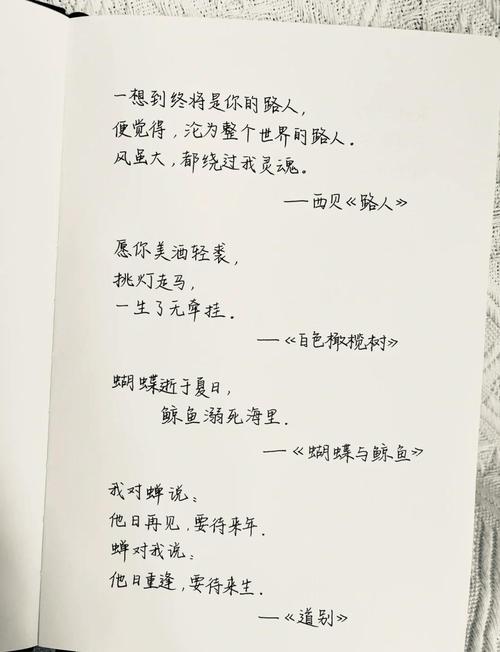 一想到终将是你的路人,
便觉得,沦为整个世界的路人.
风虽大,都绕过我灵魂。
——西贝《路人》
愿你美酒轻裘,
挑灯走马,
一生了无牵挂.
——《白色橄榄树》
蝴蝶逝于夏日,
鲸鱼溺死海里.
——《蝴蝶与鲸鱼》
我对蝉说:
他日再见,要待来年.
蝉对我说:
他日重逢,要待来生.
——《道别》